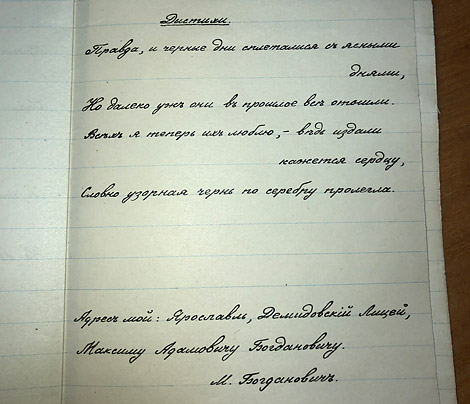 Дистихи.
Правда, и черные дни сплеталися съ ясными
днями,
Но далеко ужъ они въ прошлое все отошли.
Всѣхъ я теперь ихъ люблю, – вѣдь издали
кажется сердцу,
Словно узорная чернь по серебру пролегла.
Адресъ мой: Ярославль, Демидовскій Лицей,
Максиму Адамовичу Богдановичу.
М. Богдановичъ.